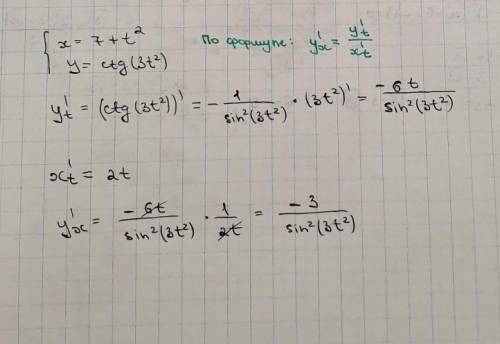 { x = 7 + t²   По формуле: y'ₓ = y'ₜ / x'ₜ
y = ctg(3t²)
y'ₜ = (ctg(3t²))' = - 1 / sin²(3t²) · (3t²)' = -6t / sin²(3t²)
x'ₜ = 2t
y'ₓ = -6t / sin²(3t²) · 1 / 2t = -3 / sin²(3t²)